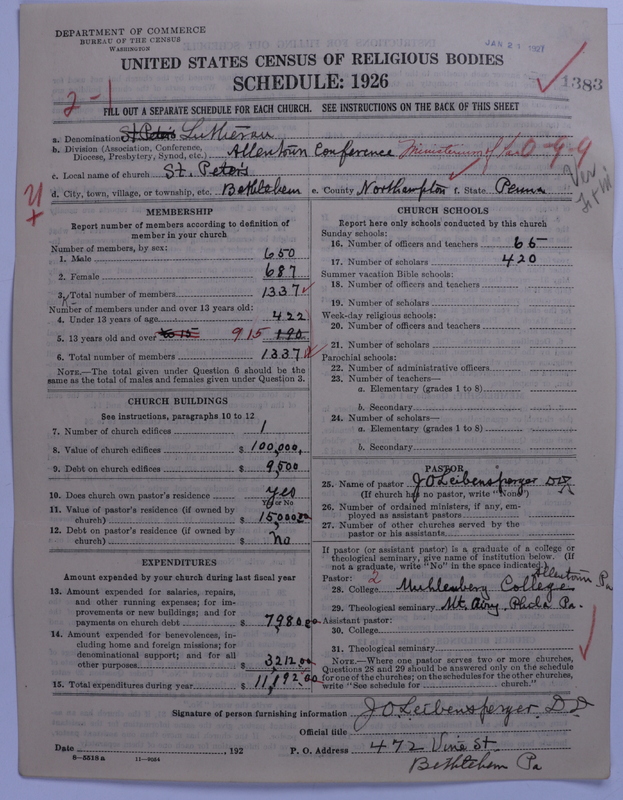 DEPARTMENT OF COMMERCE
BUREAU OF THE CENSUS
WASHINGTON
JAN 21 1927
UNITED STATES CENSUS OF RELIGIOUS BODIES
SCHEDULE: 1926
1383
2-1
FILL OUT A SEPARATE SCHEDULE FOR EACH CHURCH. SEE INSTRUCTIONS ON THE BACK OF THIS SHEET
a. Denomination St Peter's Lutheran
b. Division (Association, Conference, Diocese, Presbytery, Synod, etc.) Allentown Conference Ministerium of Pa 0-9-9
c. Local name of church St. Peter's
d. City, town, village, or township, etc. Bethlehem e. County Northampton f. State Penna
MEMBERSHIP
Report number of members according to definition of
member in your church
Number of members, by sex:
1. Male 650
2. Female 687
3. Total number of members 1337
Number of members under and over 13 years old:
4. Under 13 years of age 422
5. 13 years old and over 915 190
6. Total number of members 1337
NOTE.—The total given under Question 6 should be
same as the total of males and females given under Question 3.
CHURCH BUILDINGS
See instructions, paragraphs 10 to 12
7. Number of church edifices 1
8. Value of church edifices $ 100,000.
9. Debt on church edifices $ 9,500
10. Does church own pastor's residence yes
Yes or No
11. Value of pastor's residence (if owned by
church) $ 15,000.00
12. Debt on pastor's residence (if owned by
church) $ No
EXPENDITURES
Amount expended by your church during last fiscal year
13. Amount expended for salaries, repairs,
and other running expenses; for im-
provements or new buildings; and for
payments on church debt $ 7,980.00
14. Amount expended for benevolences, in-
cluding home and foreign missions; for
denominational support; and for all
other purposes $ 3212.00
15. Total expenditures during year $ 11,192.00
CHURCH SCHOOLS
Report here only schools conducted by this church
Sunday schools:
16. Number of officers and teachers 65
17. Number of scholars 420
Summer vacation Bible schools:
18. Number of officers and teachers
19. Number of scholars
Week-day religious schools:
20. Number of officers and teachers
21. Number of scholars
Parochial schools:
22. Number of administrative officers
23. Number of teachers—
a. Elementary (grades 1 to 8)
b. Secondary
24. Number of scholars—
a. Elementary (grades 1 to 8)
b. Secondary
PASTOR
25. Name of pastor J O Leibensperger DD
(If church has no pastor, write "None")
26. Number of ordained ministers, if any, em-
ployed as assistant pastors
27. Number of other churches served by the
pastor or his assistants
If pastor (or assistant pastor) is a graduate of a college or
theological seminary, give name of institution below. (If
not a graduate, write "No" in the space indicated.)
Pastor: 2
28. College Muhlenberg College Allentown Pa
29. Theological seminary Mt. Airy, Phila Pa.
Assistant pastor:
30. College
31. Theological seminary
NOTE.—Where one pastor serves two or more churches,
Questions 28 and 29 should be answered only on the schedule
for one of the churches; on the schedules for the other churches,
write "See schedule for church."
Signature of person furnishing information J O Leibensperger D.D
Official title
Date , 192 P. O. Address 472 Vine St
Bethlehem Pa
8-5518 a 11-9064